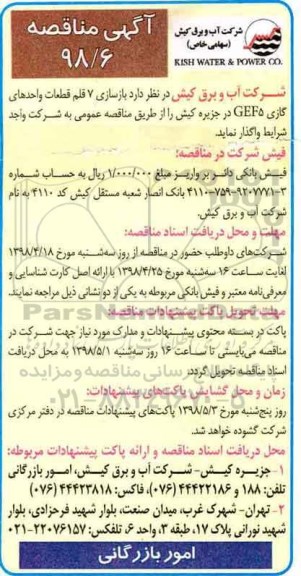 آگهی مناقصه
۹۸/۶
شرکت آب و برق کیش
(سهامی خاص)
KISH WATER & POWER CO.
شرکت آب و برق کیش در نظر دارد بازسازی ۷ قلم قطعات واحدهای
گازی GEF۵ در جزیره کیش را از طریق مناقصه عمومی به شرکت واجد
شرایط واگذار نماید.
فیش شرکت در مناقصه:
فیش بانکی دائر بر واریز مبلغ ۱/۰۰۰/۰۰۰ ریال به حساب شماره
۴۱۱۰-۷۵۹-۹۲۰۷۷۷۱-۳ بانک انصار شعبه مستقل کیش کد ۴۱۱۰ به نام
شرکت آب و برق کیش.
مهلت و محل دریافت اسناد مناقصه:
شرکت‌های داوطلب حضور در مناقصه از روز سه‌شنبه مورخ ۱۳۹۸/۴/۱۸
لغایت ساعت ۱۶ سه‌شنبه مورخ ۱۳۹۸/۴/۲۵ با ارائه اصل کارت شناسایی و
معرفی‌نامه معتبر و فیش بانکی مربوطه به یکی از دو نشانی ذیل مراجعه نمایند.
مهلت تحویل پاکت پیشنهادات مناقصه
پاکت در بسته محتوی پیشنهادات و مدارک مورد نیاز جهت شرکت در
مناقصه می‌بایستی تا ساعت ۱۶ روز سه‌شنبه ۱۳۹۸/۵/۱ به محل دریافت
اسناد مناقصه تحویل گردد.
زمان و محل گشایش پاکت‌های پیشنهادات:
روز پنج‌شنبه مورخ ۱۳۹۸/۵/۳ پاکت‌های پیشنهادات مناقصه در دفتر مرکزی
شرکت گشوده خواهد شد.
محل دریافت اسناد مناقصه و ارائه پاکت پیشنهادات مربوطه:
۱- جزیره کیش- شرکت آب و برق کیش، امور بازرگانی
تلفن: ۱۸۸ و ۴۴۴۲۲۱۸۶ (۰۷۶)، فاکس: ۴۴۴۲۳۸۱۸ (۰۷۶)
۲- تهران- شهرک غرب، میدان صنعت، بلوار شهید فرحزادی، بلوار
شهید نورانی پلاک ۱۷، طبقه ۳، واحد ۶، تلفکس: ۲۲۰۷۶۱۵۷-۰۲۱
امور بازرگانی